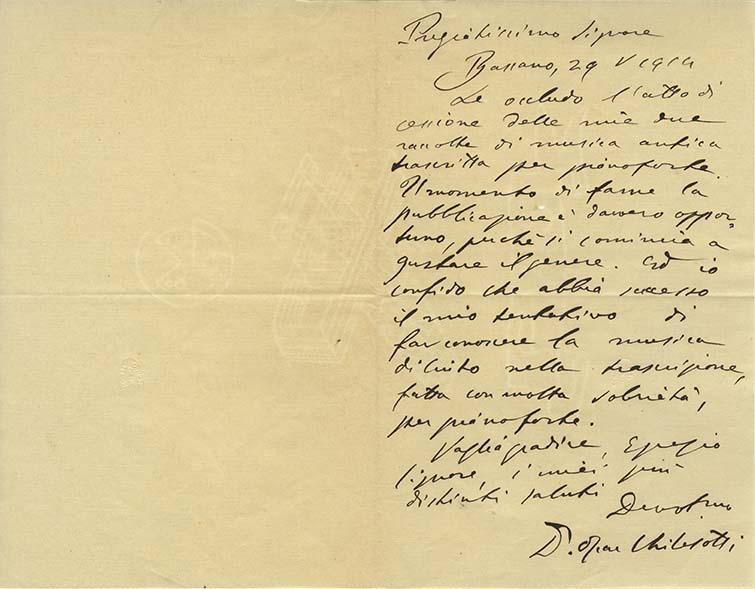 Pregiatissimo Signore
Bassano, 29 V 1914
Le accludo l'atto di
cessione delle mie due
raccolte di musica antica
trascritta per pianoforte.
Il momento di farne la
pubblicazione è davvero oppor-
tuno, perchè si comincia a
gustare il genere. Ed io
confido che abbia successo
il mio tentativo di
far conoscere la musica
di liuto nella trascrizione,
fatta con molta sobrietà,
per pianoforte.
Voglia gradire, Egregio
Signore, i miei più
distinti saluti
Devotmo
Dr. Oscar Chilesotti